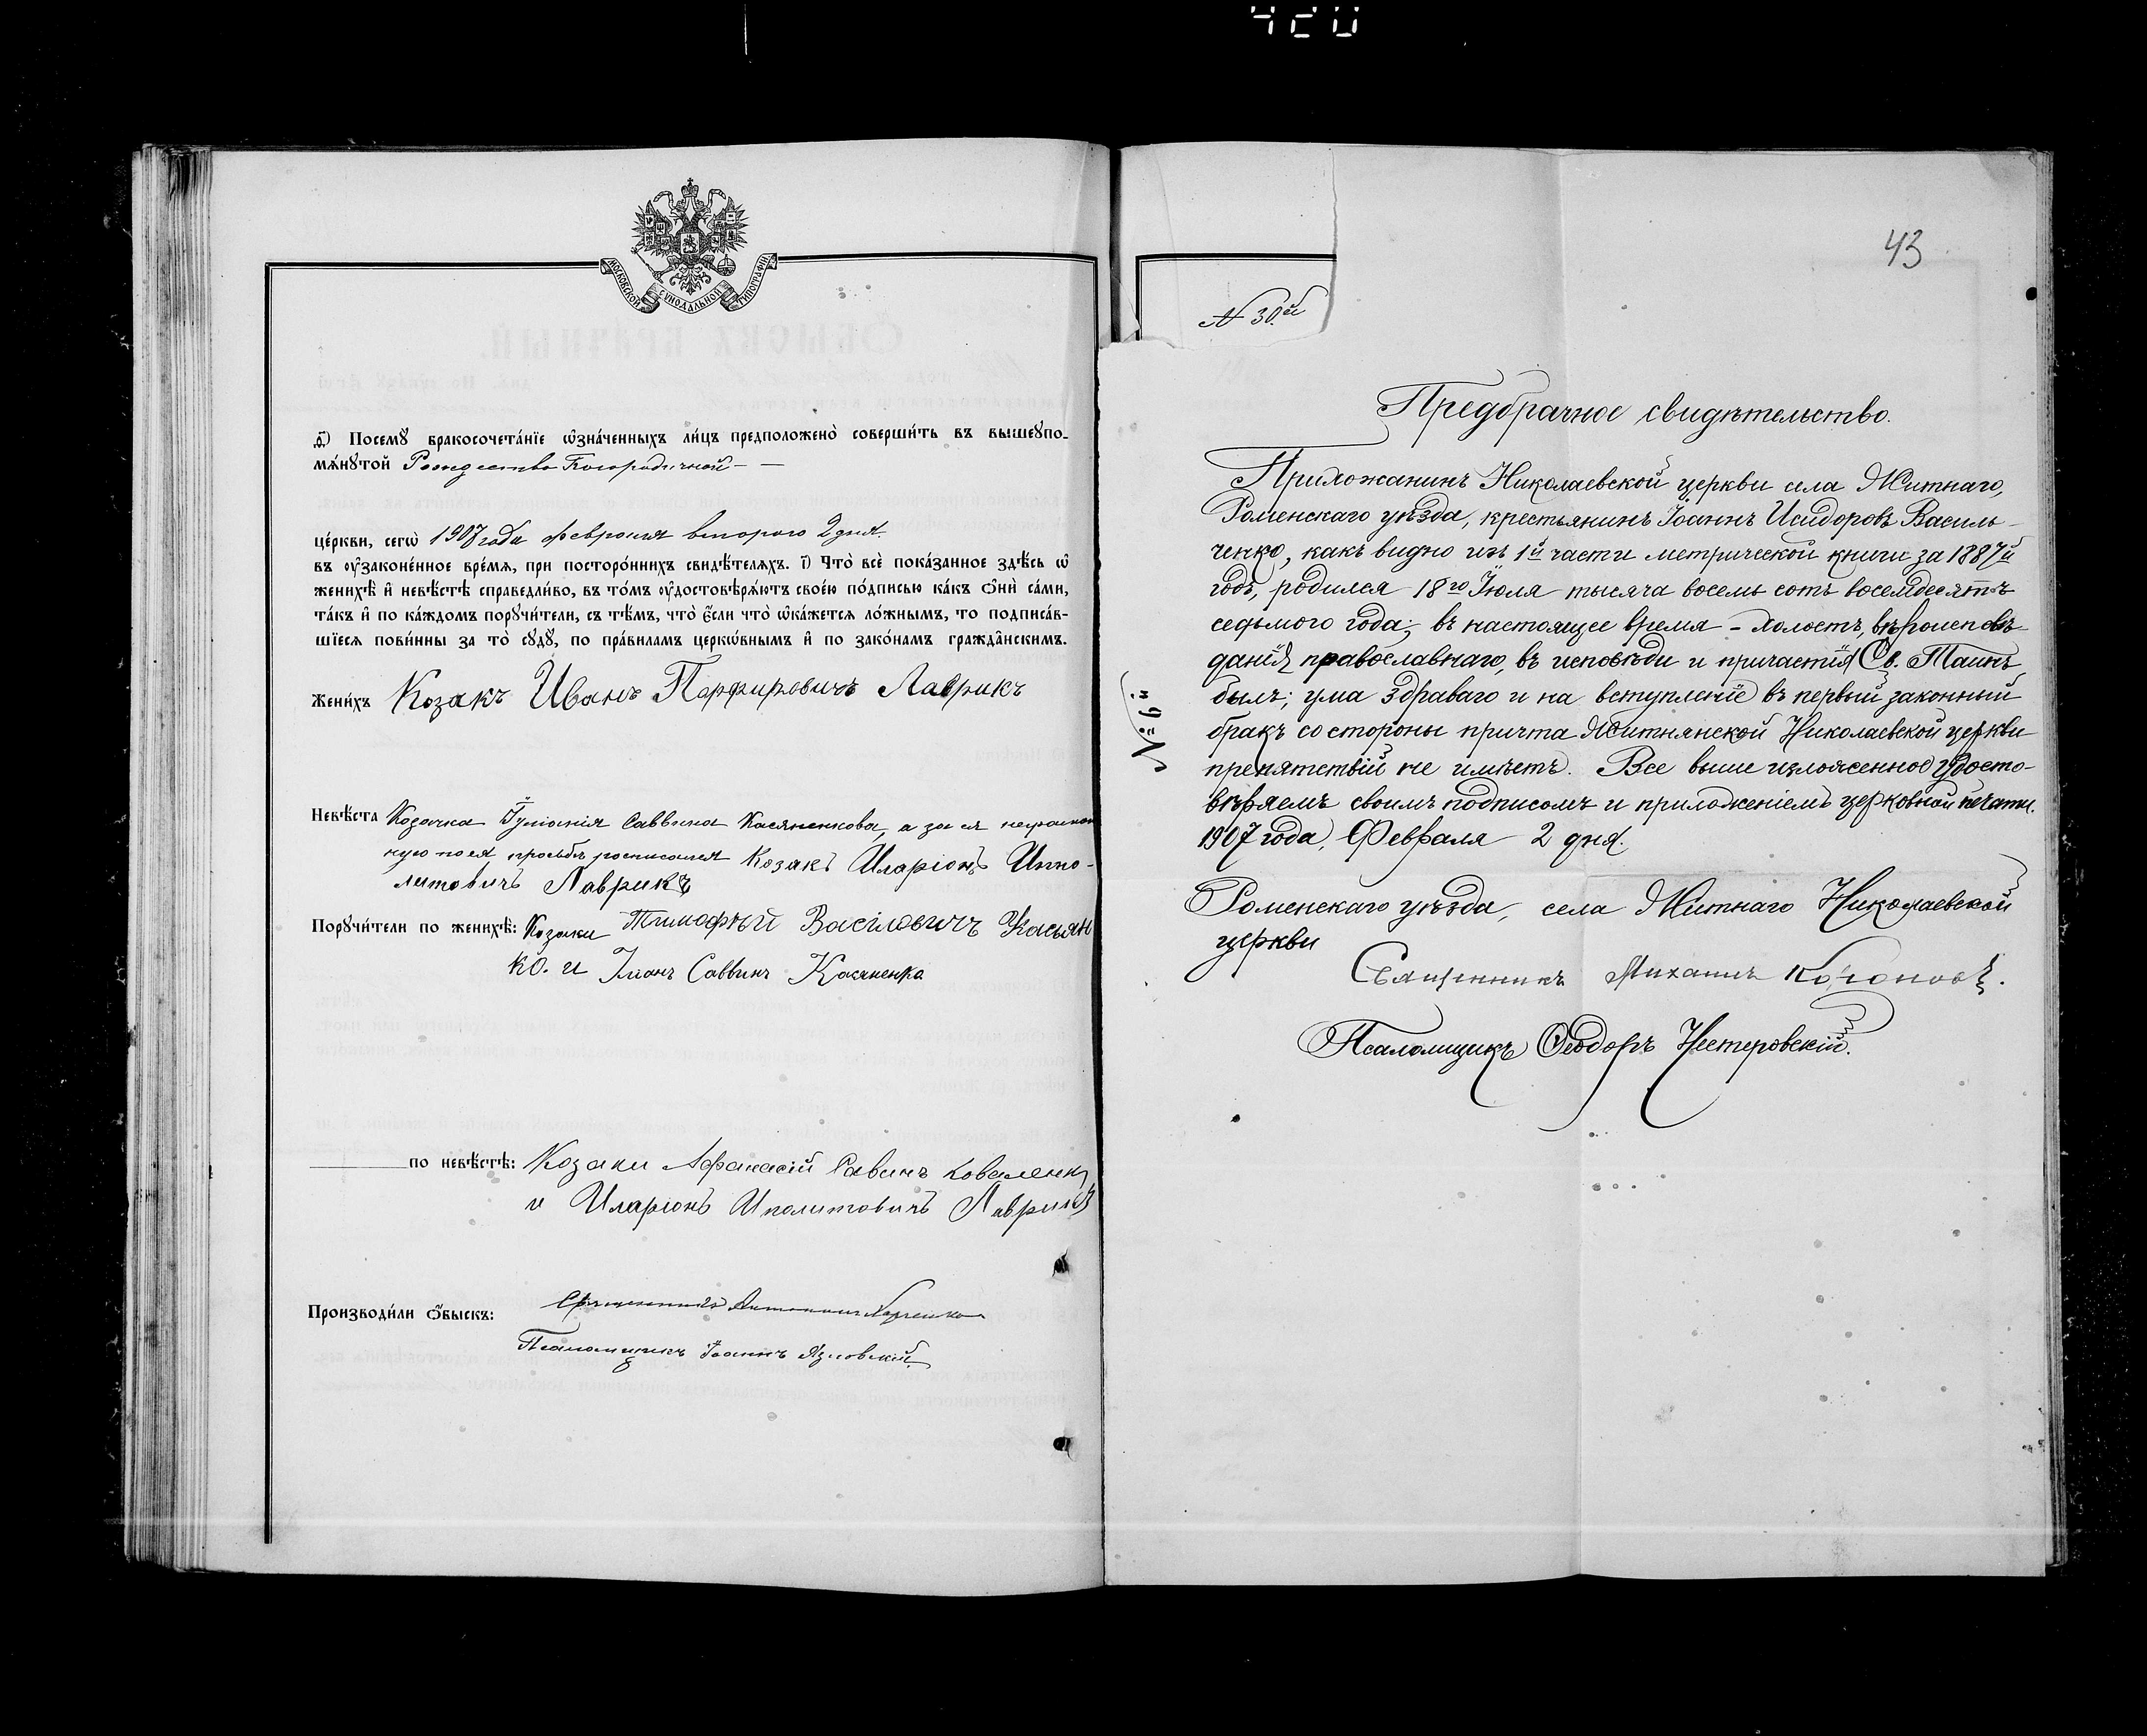 420
МОСКОВСКОЙ СУНОДАЛЬНОЙ ТИПОГРАФІИ
ѳ҃) Посемꙋ бракосочета́нїе ѡ҆зна́ченныхъ ли́цъ предположено̀ соверши́ть въ вышеꙋпо-
мѧ́нꙋтой Рождество Богородичной — —
це́ркви, сегѡ̀ 1907 года февраля второго 2 дня.
въ ᲂу҆законе́нное вре́мѧ, при посторо́ннихъ свидѣ́телѧхъ. і҃) Что̀ всѐ пока́занное здѣ́сь ѡ҆
женихѣ̀ и҆ невѣ́стѣ справедли́во, въ то́мъ ᲂу҆достовѣрѧ́ютъ свое́ю по́дписью ка́къ ѻ҆нѝ са́ми,
та́къ и҆ по ка́ждомъ порꙋчи́тели, съ тѣ́мъ, что̀ є҆́сли что̀ ѡ҆ка́жетсѧ ло́жнымъ, то подписа́в-
шїесѧ пови́нны за то̀ сꙋдꙋ̀, по пра́виламъ церкѡ́внымъ и҆ по зако́намъ гражда̑нскимъ.
Жени́хъ Козакъ Иванъ Порфировичъ Лаврикъ
Невѣ́ста Козачка Іуліанія Саввина Касяненкова, а за ея неграмот
ную по ея просьбѣ росписался Козакъ Иларіонъ Иппо-
литовичъ Лаврикъ
Порꙋчи́тели по женихѣ̀: Козаки Тимофѣй Васілювичъ Касьян
ко. и Іманъ Саввинъ Касяненко
по невѣ́стѣ: Козаки Афанасій Савинъ Коваленко
и Иларіонъ Иполитовичъ Лаврикъ
Производи́ли ѻ҆́быскъ: Священникъ
Псаломщикъ Іоаннъ Язловскій.
43
N 30й
Предбрачное свидѣтельство.
Прихожанинъ Николаевской церкви села Житнаго,
Роменскаго уѣзда, крестьянинъ Іоаннъ Исидоровъ Василь-
ченко, какъ видно изъ 1й части метрической книги за 1887й
годъ, родился 18го Іюля тысяча восемь сотъ восемдесятъ
седьмого года; въ настоящее время – холостъ, вѣроисповѣ
данія православнаго, въ исповѣди и причастія Св. Таинъ
былъ; ума здраваго и на вступленіе въ первый законный
бракъ со стороны причта Житнянской Николаевской церкви
препятствій не имѣетъ. Все выше изложенное удосто-
вѣряемъ своимъ подписомъ и приложеніемъ церковной печати.
1907 года, Февраля 2 дня.
№ 9й
Роменскаго уѣзда, села Житнаго Николаевской
церкви
Священникъ Михаилъ
Псаломщикъ Ѳеодоръ Нестеровскій.